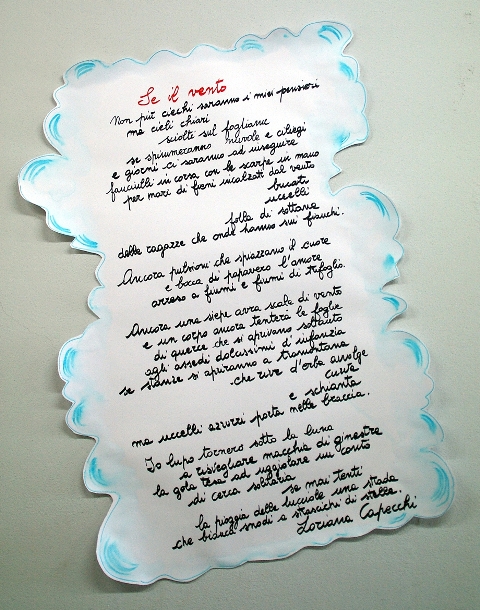 Se il vento
Non più ciechi saranno i miei pensieri
ma cieli chiari
sciolti sul fogliame
se spiumeranno nuvole e ciliegi
e giorni ci saranno ad inseguire
fanciulli in corsa con le scarpe in mano
per mari di fieni incalzati dal vento
bucati
uccelli
folla di sottane
delle ragazze che onde hanno sui fianchi.
Ancora pulsioni che spiazzano il cuore
e bocca di papavero l'amore
arreso a fiumi e fiumi di trifoglio.
Ancora una siepe avrà scale di vento
e un corpo ancora tenterà le foglie
di querce che si aprivano soltanto
agli assedi dolcissimi d'infanzia
se stanze si apriranno a tramontana
che rive d'erba avvolge
curva
e schianta
ma uccelli azzurri porta nelle braccia.
Io lupo tornerò sotto la luna
a risvegliare macchie di ginestre
la gola tesa ad uggiolare un canto
di cerca solitaria
se mai tenti
la pioggia delle lucciole una strada
che bianca snodi a strascichi di stelle.
Loriana Capecchi